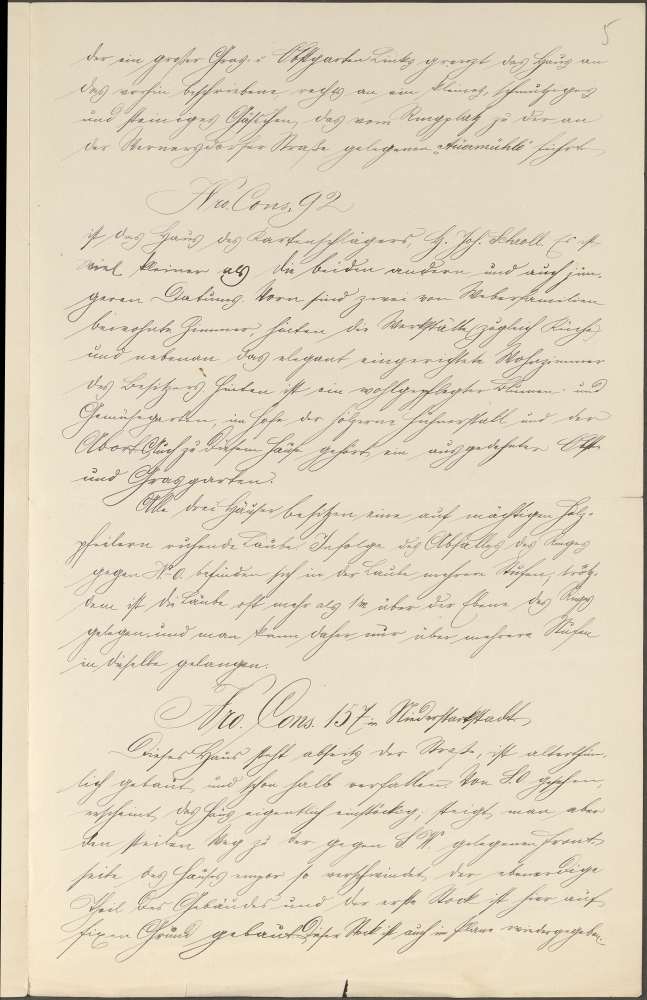 5
der ein großer Gras- u. Obstgarten. Links grenzt das Haus an
das vorhin beschriebene, rechts an ein kleines, schmutziges
und steiniges Gäßchen, das vom Ringplatz zu der an
der Wernersdorfer Straße gelegenen „Auermühle" führt.
Nro. Cons. 92
ist das Haus des Kartenschlägers, H. Joh. Scholl. Es ist
viel kleiner als die beiden andern und auch jün-
geren Datums. Vorn sind zwei von Weberfamilien
bewohnte Zimmer, hinten die Werkstätte (zugleich Küche)
und nebenan das elegant eingerichtete Wohnzimmer
des Besitzers. Hinten ist ein wohlgepflegter Blumen- und
Gemüsegarten, im Hofe der hölzerne Hühnerstall und der
Abort. Auch zu diesem Hause gehört ein ausgedehnter Obst-
und Grasgarten.
Alle drei Häuser besitzen eine auf mächtigen Holz-
pfeilern ruhende Laube. Infolge des Abfalles des Ringes
gegen N. O. befinden sich in der Laube mehrere Stufen, trotz-
dem ist die Laube oft mehr als 1m über der Ebene des Ringes
gelegen und man kann daher nur über mehrere Stufen
in dieselbe gelangen.
Nro. Cons. 157 in Niederstarkstadt
Dieses Haus steht abseits der Straße, ist alterthüm-
lich gebaut und schon halb verfallen. Von S.O. gesehen,
erscheint das Haus eigentlich einstöckig; steigt man aber
den steilen Weg zu der gegen S W. gelegenen Front-
seite des Hauses empor so verschwindet der ebenerdige
Theil des Gebäudes und der erste Stock ist hier auf
fixen Grund gebaut. Dieser Stock ist auch im Plane wiedergegeben.